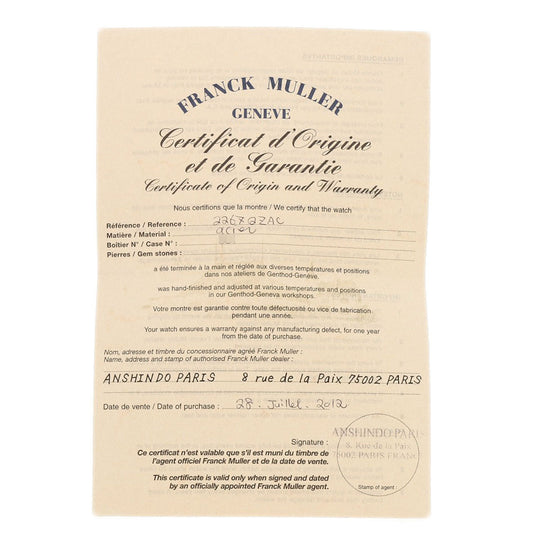 FRANCK MULLER
GENEVE
Certificat d'Origine
et de Garantie
Certificate of Origin and Warranty
Nous certifions que la montre / We certify that the watch
Référence / Reference : 2267QZAC
Matière / Material : acier
Boîtier N° / Case N° :
Pierres / Gem stones :
a été terminée à la main et réglée aux diverses températures et positions
dans nos ateliers de Genthod-Genève.
was hand-finished and adjusted at various temperatures and positions
in our Genthod-Geneva workshops.
Votre montre est garantie contre toute défectuosité ou vice de fabrication
pendant une année.
Your watch ensures a warranty against any manufacturing defect, for one year
from the date of purchase.
Nom, adresse et timbre du concessionnaire agréé Franck Muller :
Name, address and stamp of authorised Franck Muller dealer :
ANSHINDO PARIS 8 rue de la Paix 75002 PARIS
Date de vente / Date of purchase : 28. Juillet. 2012
Signature :
Ce certificat n'est valable que s'il est muni du timbre de
l'agent officiel Franck Muller et de la date de vente.
This certificate is valid only when signed and dated
by an officially appointed Franck Muller agent.
ANSHINDO PARI
8, Rue de la Paix
75002 PARIS FRANC
Stamp of agent :